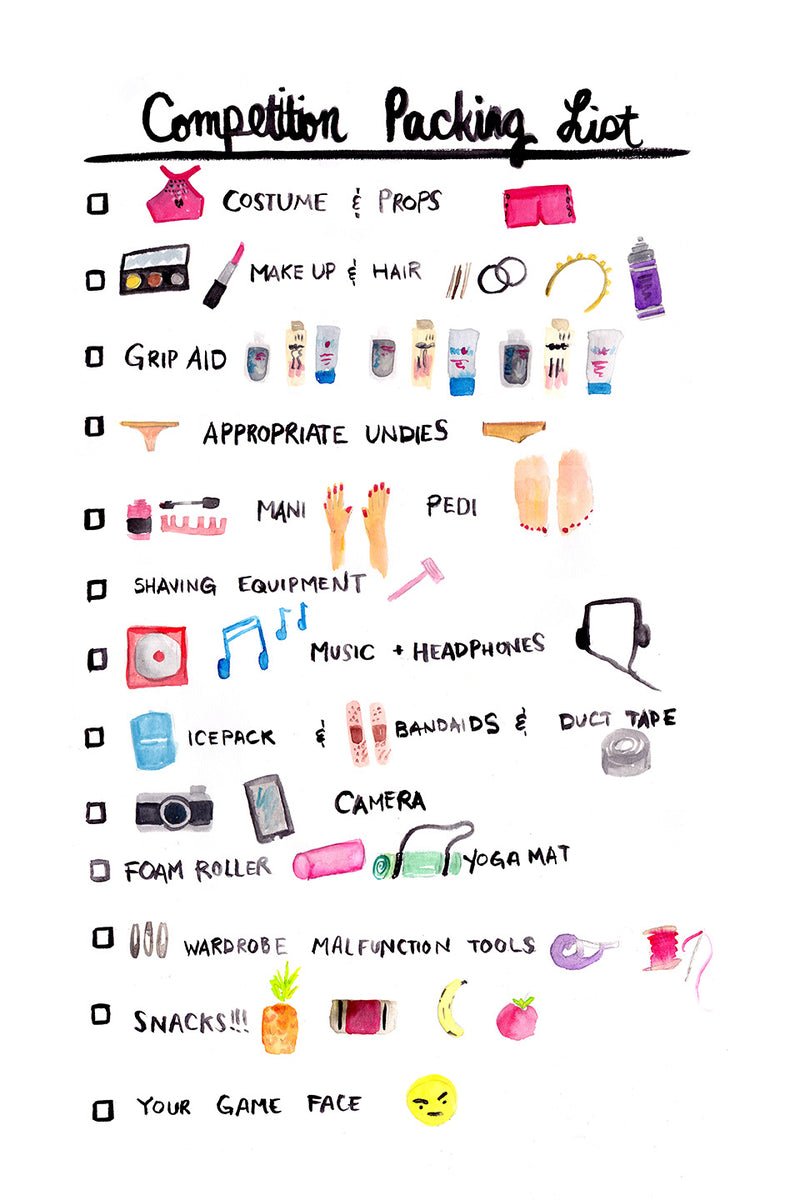 Competition Packing List
COSTUME & PROPS
MAKE UP & HAIR
GRIP AID
APPROPRIATE UNDIES
MANI PEDI
SHAVING EQUIPMENT
MUSIC + HEADPHONES
ICEPACK & BANDAIDS & DUCT TAPE
CAMERA
FOAM ROLLER YOGA MAT
WARDROBE MALFUNCTION TOOLS
SNACKS!!!
YOUR GAME FACE